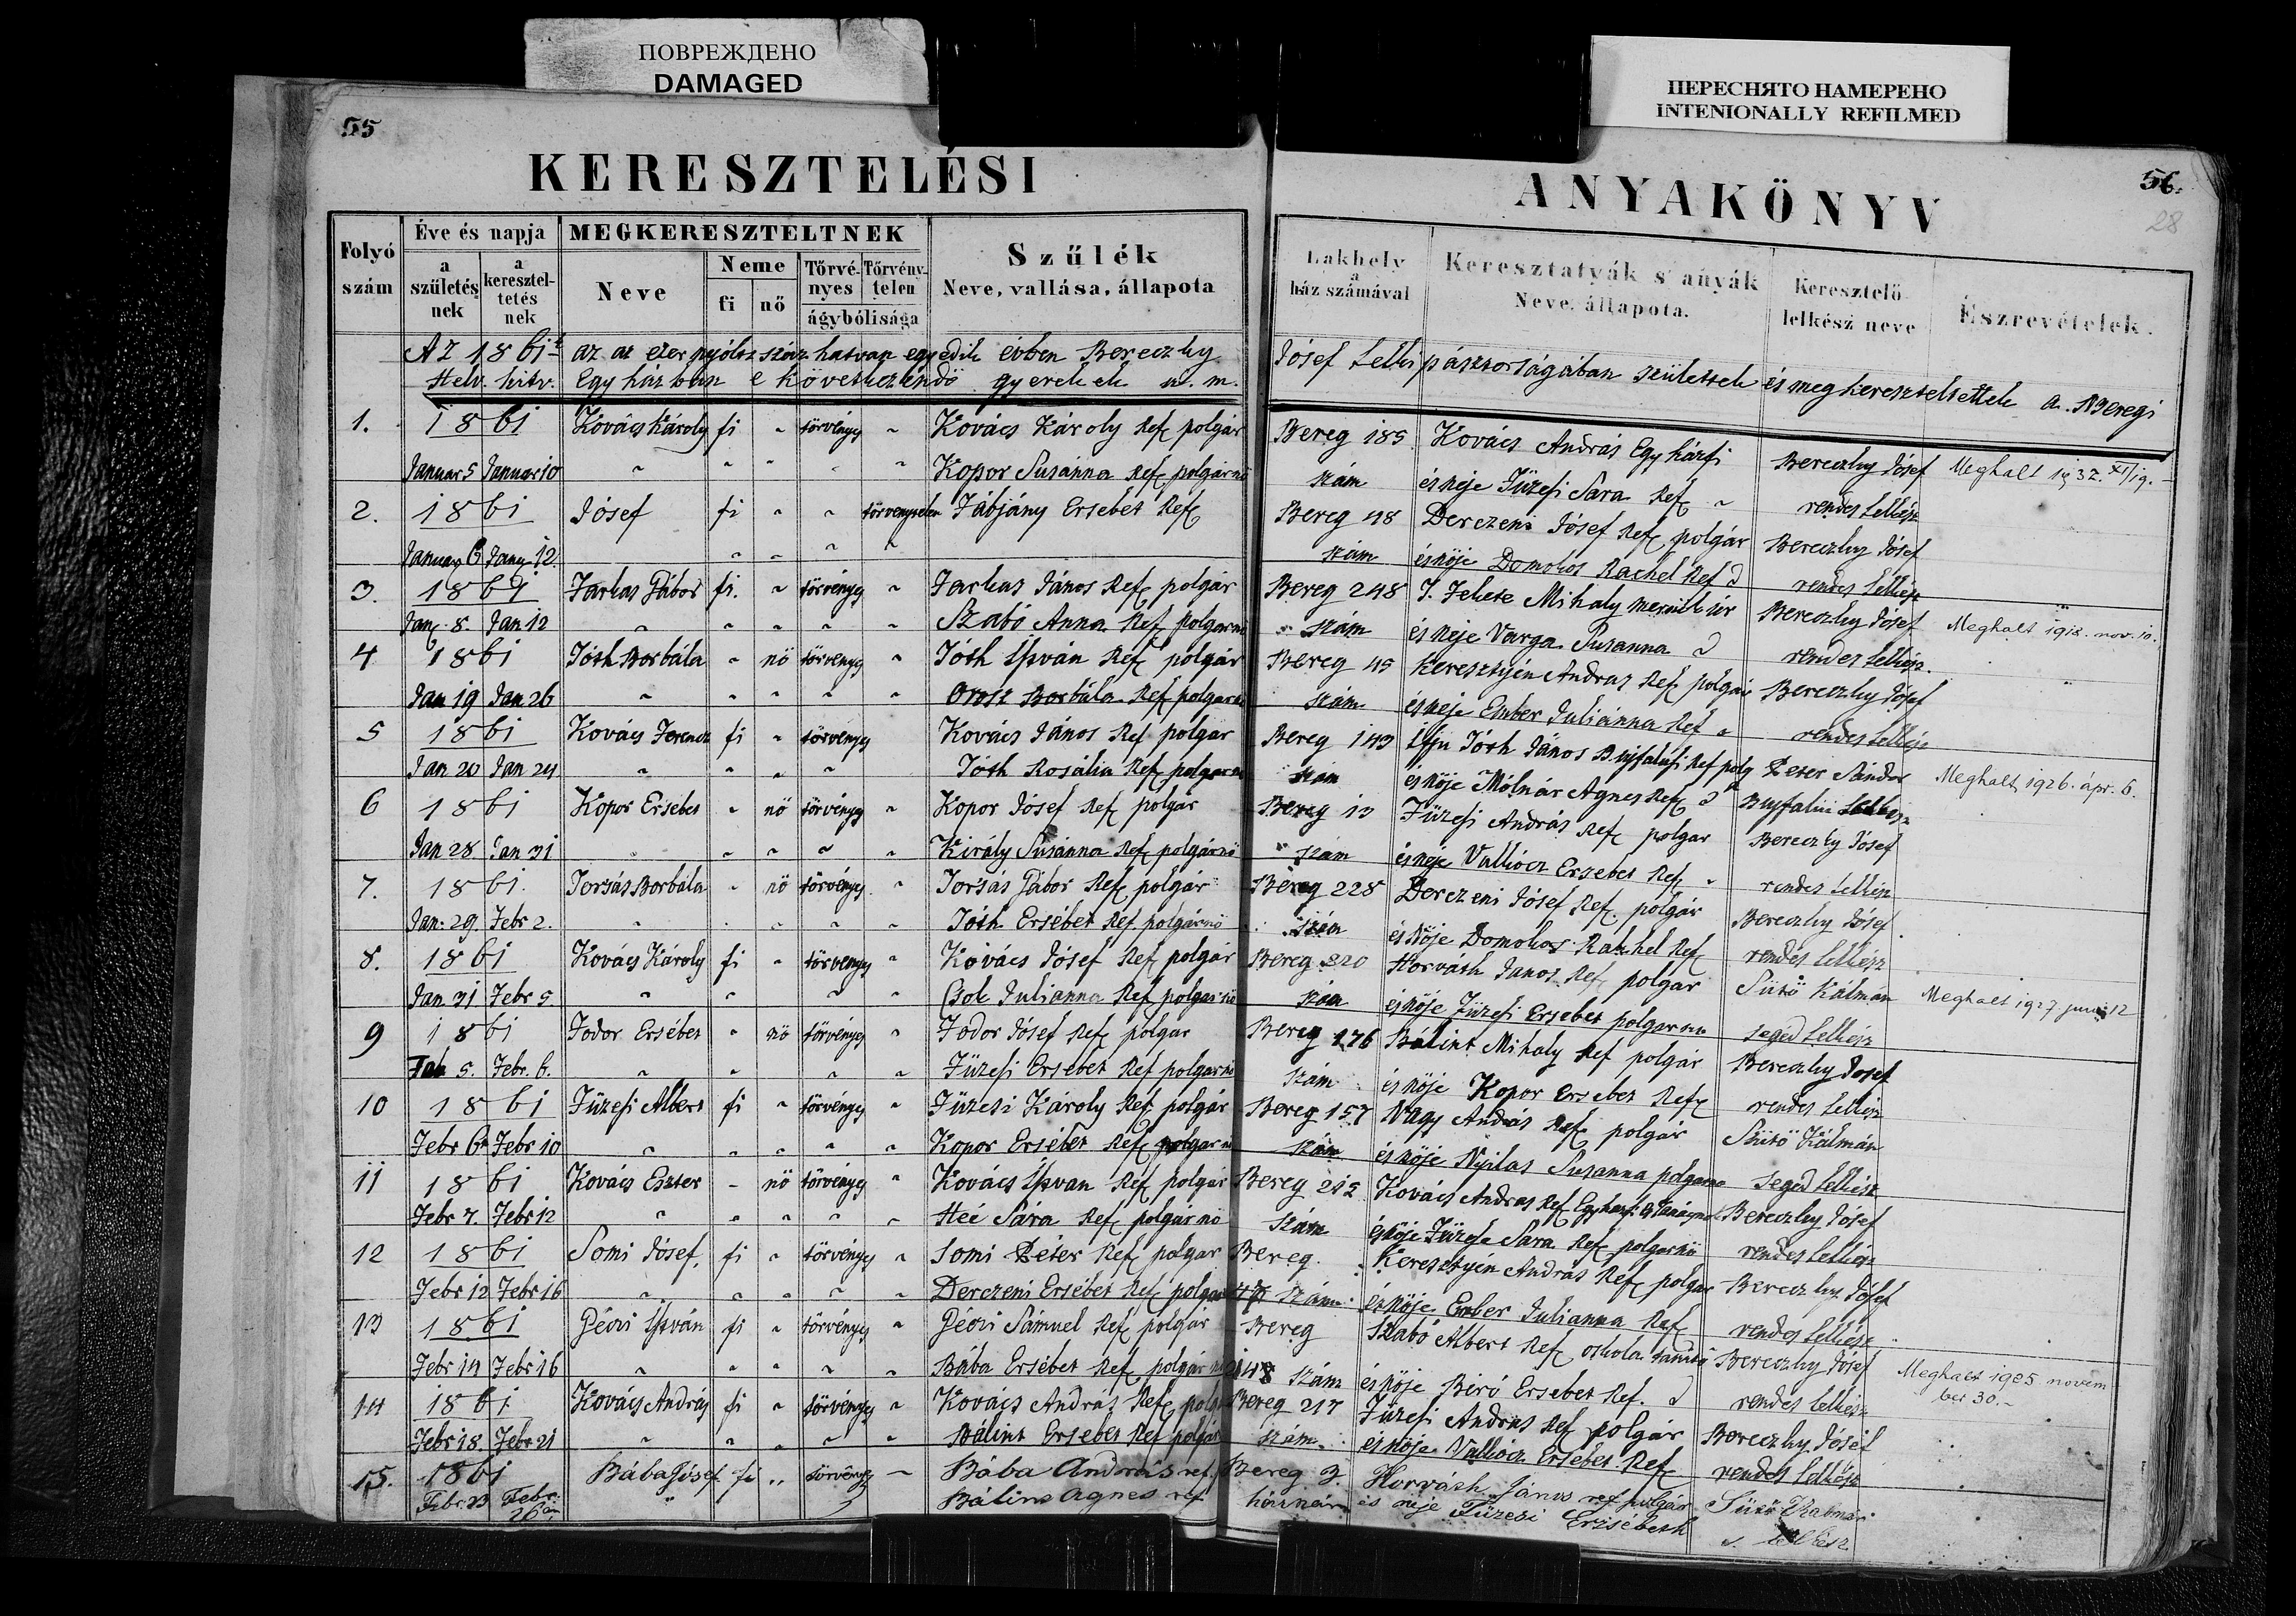 ПОВРЕЖДЕНО
DAMAGED
ПЕРЕСНЯТО НАМЕРЕНО
INTENIONALLY REFILMED
55
56.
28
KERESZTELÉSI ANYAKÖNYV
Folyó szám
Éve és napja
a születés nek
a keresztel- tetés nek
MEGKERESZTELTNEK
Neve
Neme
fi
nő
Törvé- nyes
Törvény- telen
ágybólisága
Szűlék
Neve, vallása, állapota
Lakhely
a
ház számával
Keresztatyák s anyák
Neve, állapota.
Keresztelő
lelkész neve
Észrevételek.
Az 1861k az az ezer nyólcz száz hatvan egyedik évben Bereczky Jósef Lelki pásztorságában születtek és megkereszteltettek a Beregi
Helv. hitv. Egyházban e következendö gyerekek u. m.
1. 1861 Kovács Károly fi " törvényes " Kovács Károly Ref polgár Bereg 185 Kovács András Egyházfi Bereczky Jósef Meghalt 1937. XI/19.
Januar 5 Januar 10 " " " " " Kopor Susánna Ref polgárnö szám és neje Füzesi Sara Ref " rendes Lelkész
2. 1861 Jósef fi " " törvenytelen Fábjány Ersebet Ref Bereg 48 Derczeni Jósef Ref polgár Bereczky Jósef
Januar 6 Januar 12 szám és nöje Domokos Rachel Ref rendes Lelkész
3. 1861 Farkas Gábor fi. " törvényes " Farkas János Ref polgár Bereg 248 I. Fekete Mihaly úr Bereczky Jósef Meghalt 1918. nov. 10.
Jan 8. Jan 12 " " " " " Szabó Anna Ref polgarnö szám és neje Varga Susanna rendes Lelkész
4 1861 Tóth Borbála " nö törvényes " Tóth István Ref polgár Bereg 45 Keresztyén Andras Ref polgár Bereczky Jósef
Jan 19 Jan 26 " " " " " Orosz Borbála Ref polgarnö szám és neje Ember Juliánna Ref " rendes Lelkész
5 1861 Kovács Ferencz fi " törvényes Kovács János Ref polgar Bereg 143 Ifju Tóth János Bujfalusi Ref polg Peter Sándor Meghalt 1926. ápr. 6.
Jan 20 Jan 24 " " " " Tóth Rosália Ref polgarnö szám és nöje Mólnár Agnes Ref Bujfalui Lelkész
6 1861 Kopor Ersébet " nö törvényes " Kopor Jósef Ref polgár Bereg 13 Füzesi András Ref polgar Bereczky Jósef
Jan 28 Jan 31 " " " " Király Susánna Ref polgárnö szám és neje Vallócz Ersebet Ref " rendes Lelkész
7. 1861. Forsás Borbála " nö törvényes " Forsás Gábor Ref polgár Bereg 228 Derczeni Jósef Ref polgár Bereczky Jósef
Jan. 29. Febr 2. " " " " Tóth Ersébet Ref polgárnö szám és nöje Domokos Rachel Ref rendes Lelkész
8. 1861 Kovács Károly fi " törvenyes " Kovács Jósef Ref polgár Bereg 220 Horváth Janos Ref polgar Sütö Kálmán Meghalt 1927 juni 12
Jan 31 Febr 5 " " " " Csok Julianna Ref polgarnö szám és nöje Füzesi Ersebet polgarnö segéd Lelkész
9 1861 Fodor Ersébet " nö törvényes " Fodor Jósef Ref polgar Bereg 176 Bálint Mihaly Ref polgár Bereczky Josef
Feb 5. Febr. 6. " " " " Füzesi Ersebet Ref polgarnö szám és nöje Kopor Ersebet Ref rendes Lelkész
10 1861 Füzesi Albert fi " törvényes " Füzesi Károly Ref polgár Bereg 157 Nagy András Ref polgár Sütö Kálmán
Febr 6 Febr 10 " " " " " Kopor Ersébet Ref polgarnö szám és nöje Nyilas Susanna polgarnö Segéd Lelkész
11 1861 Kovács Eszter - nö törvényes " Kovács Istvan Ref polgár Bereg 212 Kovács Andras Ref Egyházfi Bereczky Jósef
Febr 7. Febr 12 " " " " " Heé Sára Ref polgárnö szám és nöje Füzesi Sara Ref polgarnö rendes Lelkész
12 1861 Somi Jósef, fi " törvényes " Somi Péter Ref polgar Bereg Keresztyén András Ref polgar Bereczky Jósef
Febr 12 Febr 16 " " " " " Derczeni Ersébet Ref polgar szám és nöje Ember Julianna Ref rendes Lelkész
13 1861 Géczi István fi " törvényes " Géczi Sámuel Ref polgár Bereg Szabó Albert Ref oskola tanitó Bereczky Jósef Meghalt 1925 novem
Febr 14 Febr 16 " " " " " Bába Ersébet Ref polgárnö 248 szám és nöje Biró Ersebet Ref. rendes Lelkész ber 30.-
14 1861 Kovács András fi " törvényes " Kovács András Ref polg Bereg 217 Füzesi András Ref polgár Bereczky Jósef
Febr 18. Febr 21 " " " " " Bálint Ersebet Ref polgár szám és nöje Vallócz Ersebet Ref rendes Lelkész
15. 1861 Bába Jósef fi " törvényes - Bába András ref. Bereg 3. Horváth János ref polgár Sütö Kálmán
Febr. 23 Febr. 26án " Bálint Agnes ref házszám és neje Füzesi Erzsébeth s. lelkész